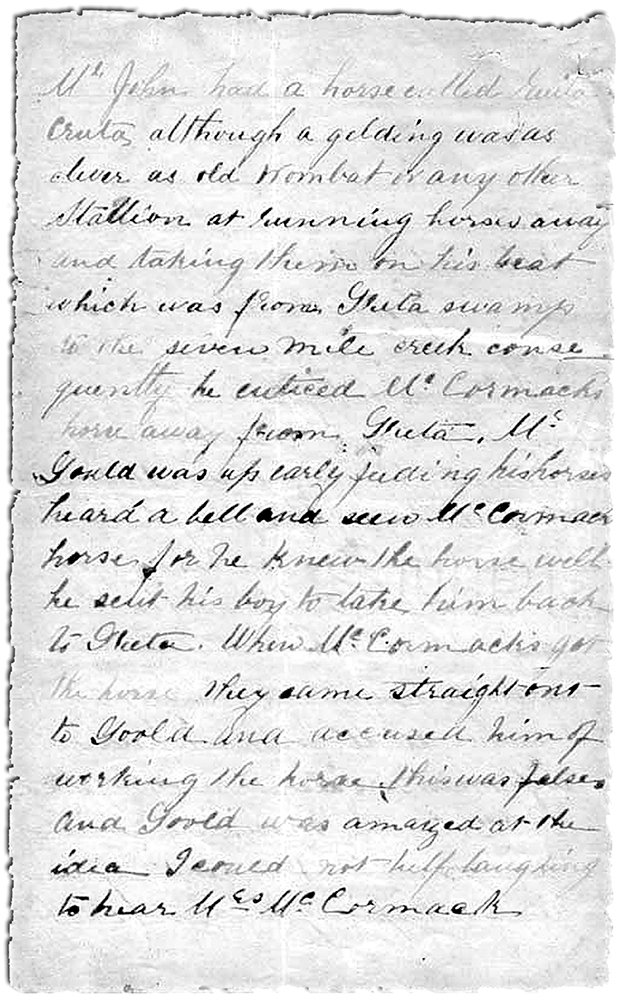 Mr John had a horse called Ruita
Cruta, although a gelding was as
clever as old Wombat or any other
Stallion at running horses away
and taking them on his beat
which was from Greta swamp
to the seven mile creek conse
quently he enticed Mc Cormacks
horse away from Greta. Mr
Gould was up early feeding his horses
heard a bell and seen Mc Cormack
horse for he knew the horse well
he sent his boy to take him back
to Greta. When Mc Cormack's got
the horse they came straight out
to Goold and accused him of
working the horse this was false
and Goold was amazed at the
idea I could not help laughing
to hear Mrs Mc Cormack